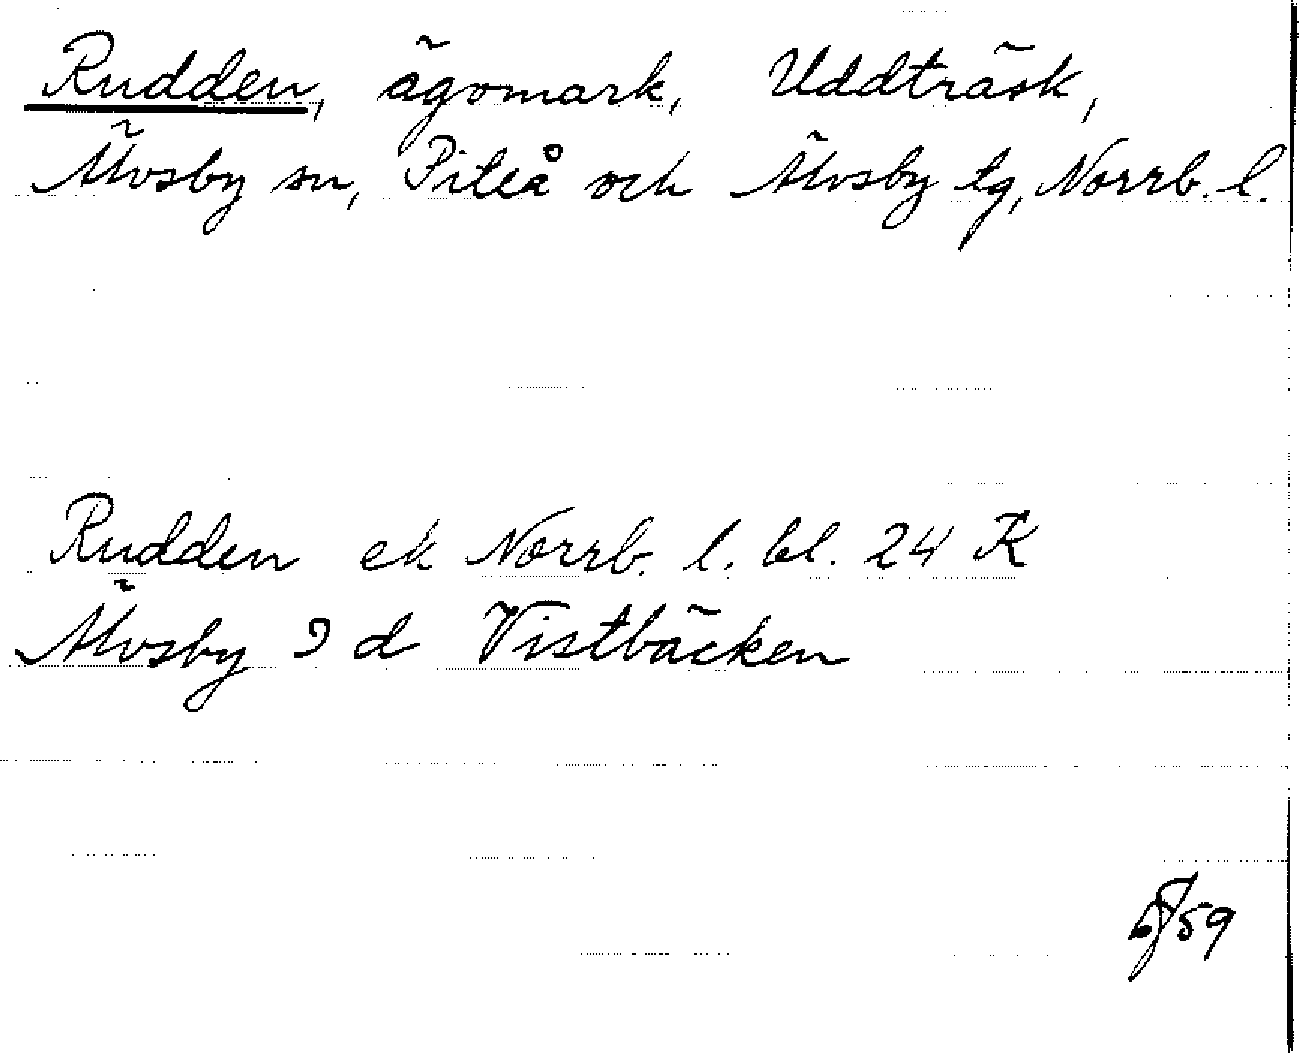 Rudden, ägomark, Uddträsk,
Älvsby sn, Piteå och Älvsby tg, Norrb. l.
Rudden ek Norrb. l. bl. 24 K
Älvsby 9 d Vistbäcken
59